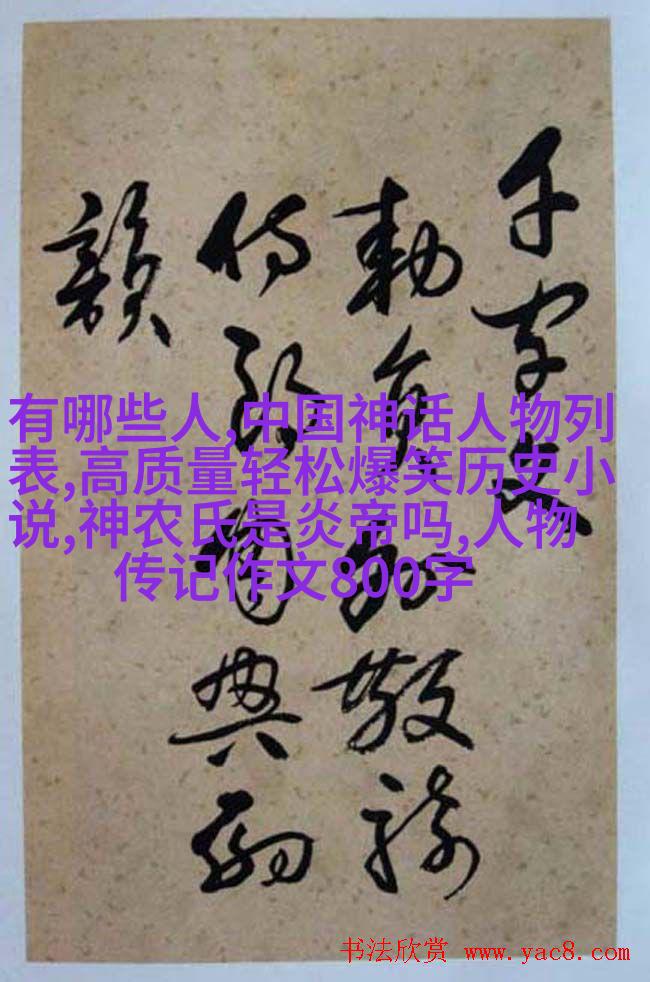 千字文
勅員外散騎
侍郎周興嗣
韻
有哪些人,中国神话人物列
表,高质量轻松爆笑历史小
说,神农氏是炎帝吗,人物
传记作文800字
书法欣赏 www.yac8.com